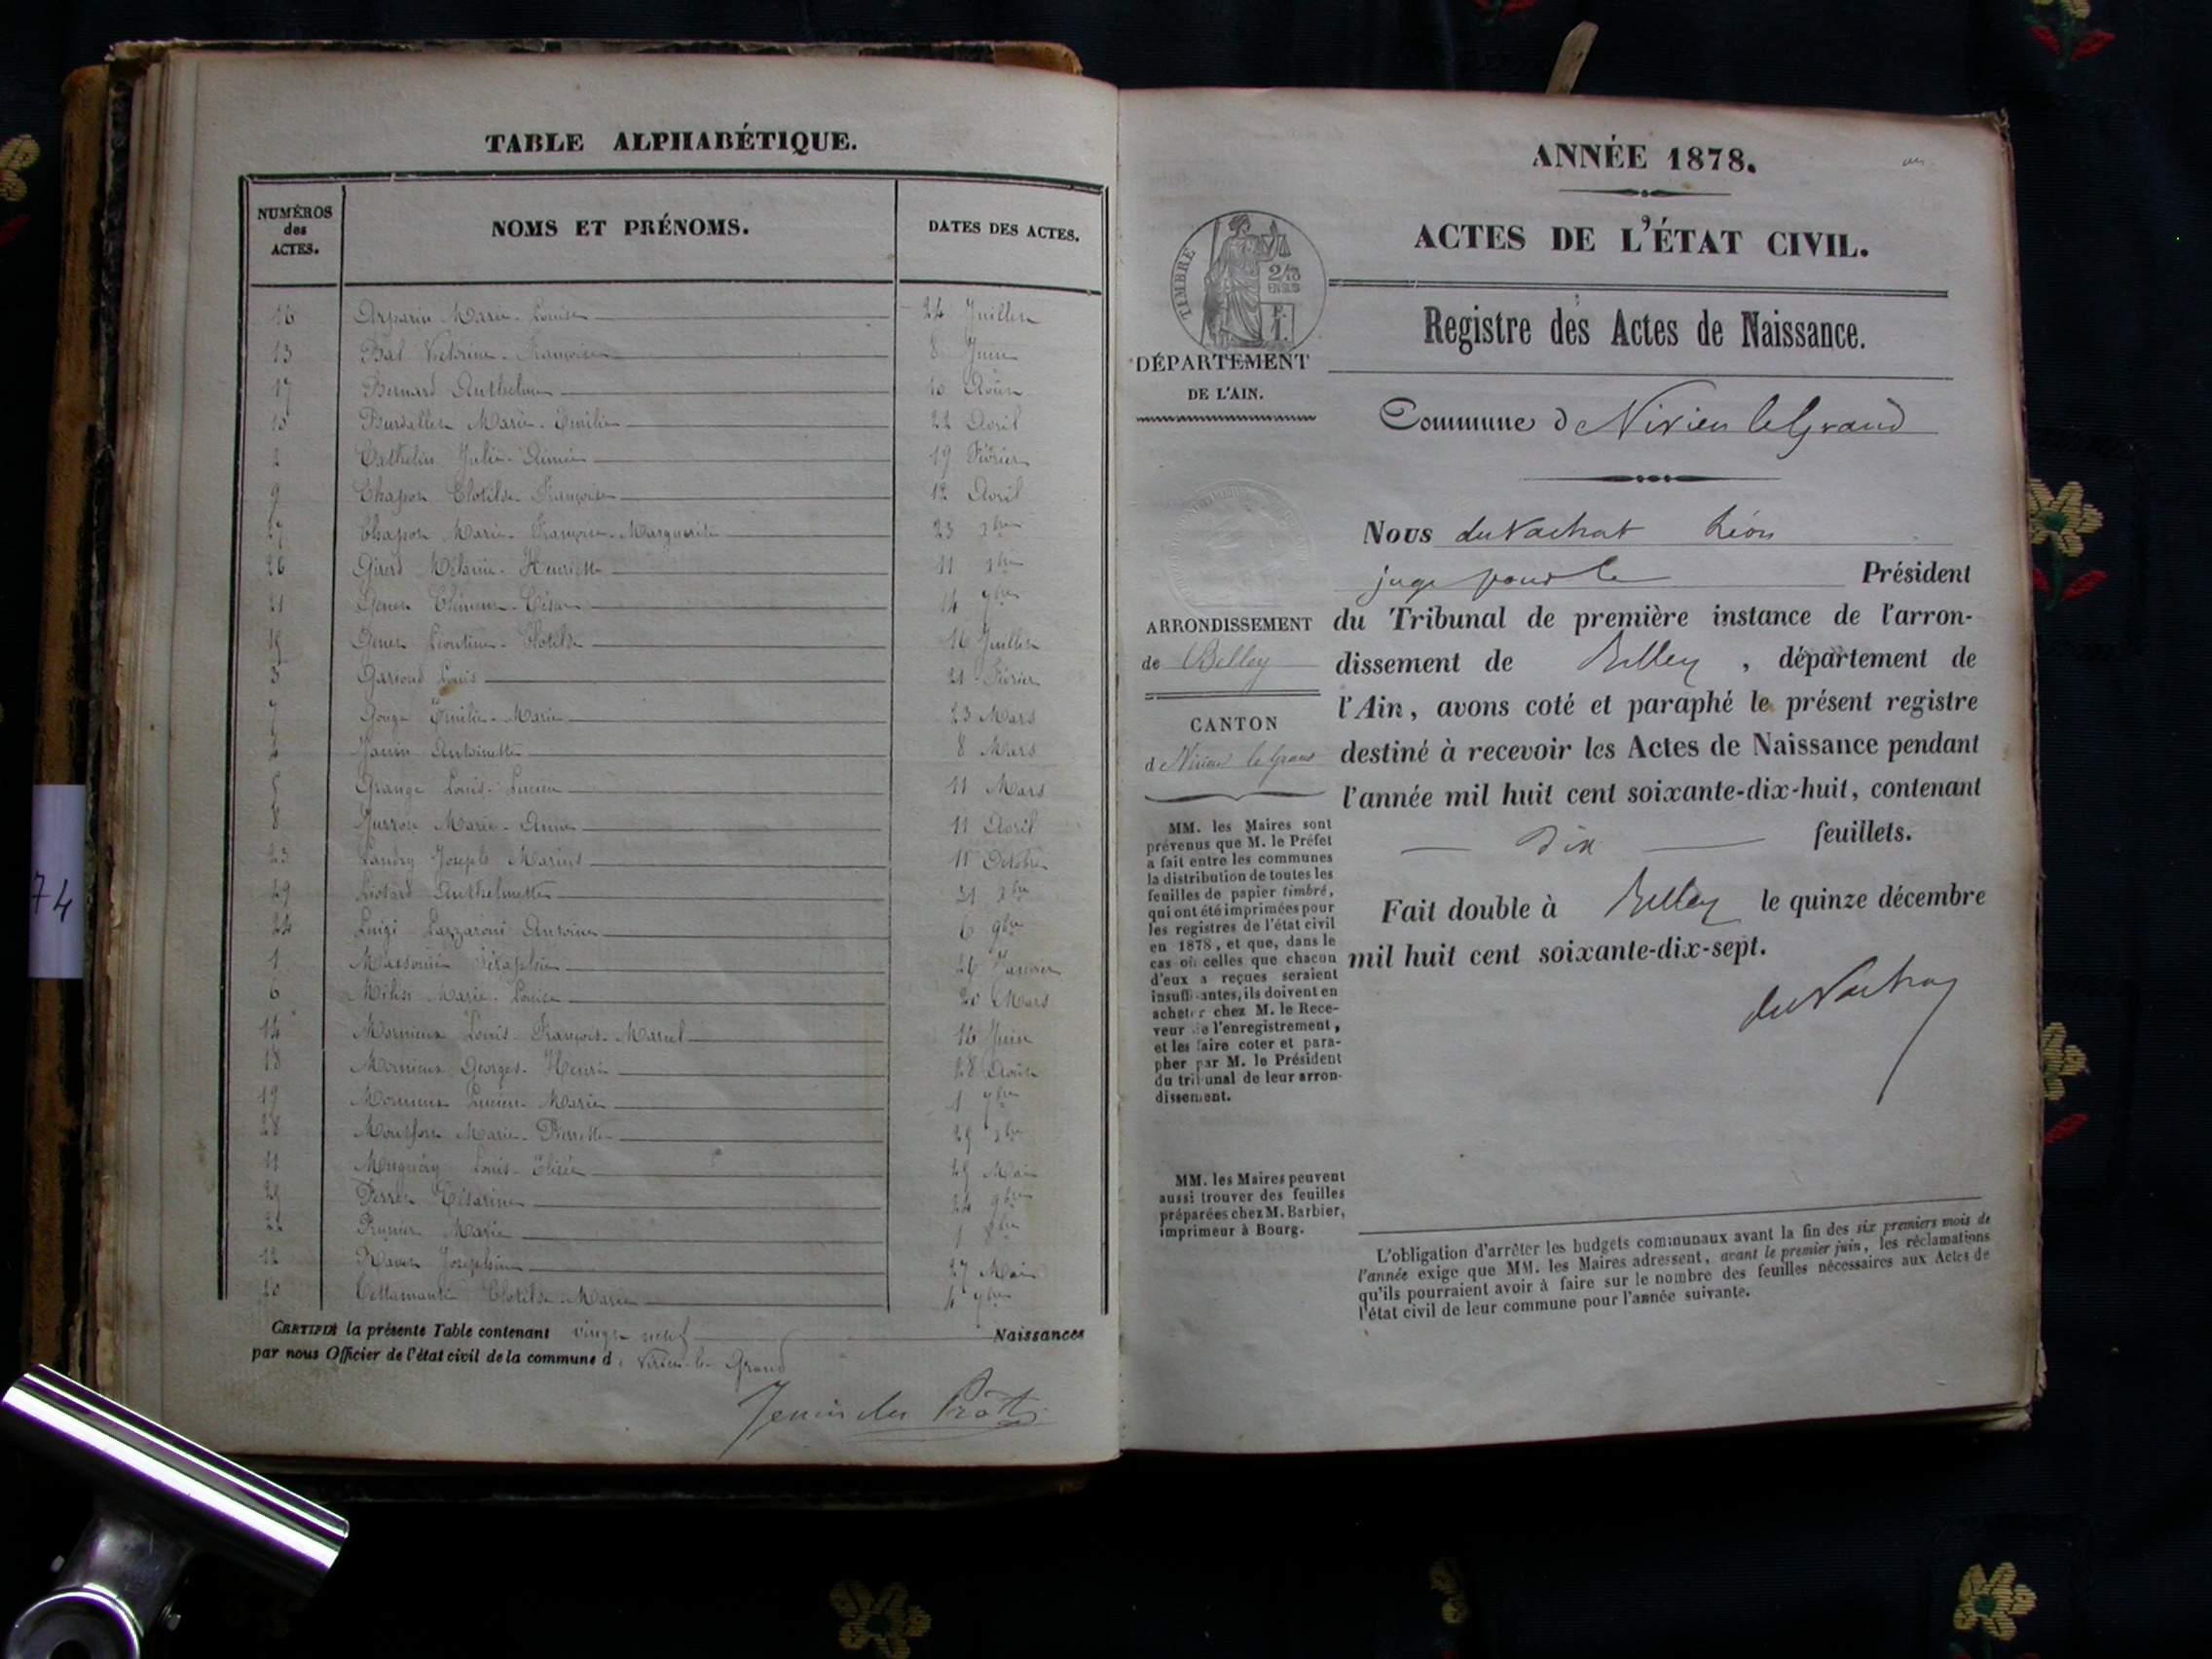 TABLE ALPHABÉTIQUE.
NUMÉROS
des
ACTES.
NOMS ET PRÉNOMS.
DATES DES ACTES.
16 Marie-Louise 24 Juillet
13 Bal Victorine-Françoise 8 Juin
17 Bernard Anthelme 10 Août
10 Marie-Emilie 22 Avril
2 Cathelin Julie-Aimée 19 Février
9 Chapon Clotilde-Françoise 12 Avril
27 Chapon Marie-Françoise-Marguerite 23 xbre
26 Girerd Mélanie-Henriette 11 xbre
21 César 14 7bre
15 Léontine-Clotilde 16 Juillet
3 Louis 21 Février
7 Gouge Emilie-Marie 23 Mars
4 Janin Antoinette 8 Mars
5 Grange Louis-Lucien 11 Mars
8 Marie-Anne 11 Avril
23 Landry Joseph Marius 11 Octobre
29 Liotard Anthelmette 31 xbre
24 Luigi Lazzaroni Antoine 6 9bre
1 26 Janvier
6 Marie-Louise 20 Mars
14 Mornieux Louis-François-Marcel 16 Juin
18 Mornieux Georges-Henri 28 Août
19 Mornieux Lucien-Marie 1 7bre
28 Montfort Marie-Pierrette 29 xbre
11 Louis-Elisée 25 Mai
25 Perret Césarine 24 9bre
22 Prunier Marie 1 8bre
12 Joséphine 27 Mai
20 Clotilde-Marie 4 7bre
CERTIFIÉ la présente Table contenant vingt neuf Naissances
par nous Officier de l'état civil de la commune de Virieu-le-Grand
Jenin des Prôts
74
ANNÉE 1878.
ACTES DE L'ÉTAT CIVIL.
TIMBRE
2/10
EN SUS
F.
1.
Registre des Actes de Naissance.
DÉPARTEMENT
DE L'AIN.
Commune d Virieu le Grand
Nous du Vachat Léon
juge pour le Président
du Tribunal de première instance de l'arron-
dissement de Belley, département de
l'Ain, avons coté et paraphé le présent registre
destiné à recevoir les Actes de Naissance pendant
l'année mil huit cent soixante-dix-huit, contenant
dix feuillets.
Fait double à Belley le quinze décembre
mil huit cent soixante-dix-sept.
du Vachat
ARRONDISSEMENT
de Belley
CANTON
de Virieu le Grand
MM. les Maires sont
prévenus que M. le Préfet
a fait entre les communes
la distribution de toutes les
feuilles de papier timbré,
qui ont été imprimées pour
les registres de l'état civil
en 1878, et que, dans le
cas où celles que chacun
d'eux a reçues seraient
insuffisantes, ils doivent en
acheter chez M. le Rece-
veur de l'enregistrement,
et les faire coter et para-
pher par M. le Président
du tribunal de leur arron-
dissement.
MM. les Maires peuvent
aussi trouver des feuilles
préparées chez M. Barbier,
imprimeur à Bourg.
L'obligation d'arrêter les budgets communaux avant la fin des six premiers mois de
l'année exige que MM. les Maires adressent, avant le premier juin, les réclamations
qu'ils pourraient avoir à faire sur le nombre des feuilles nécessaires aux Actes de
l'état civil de leur commune pour l'année suivante.